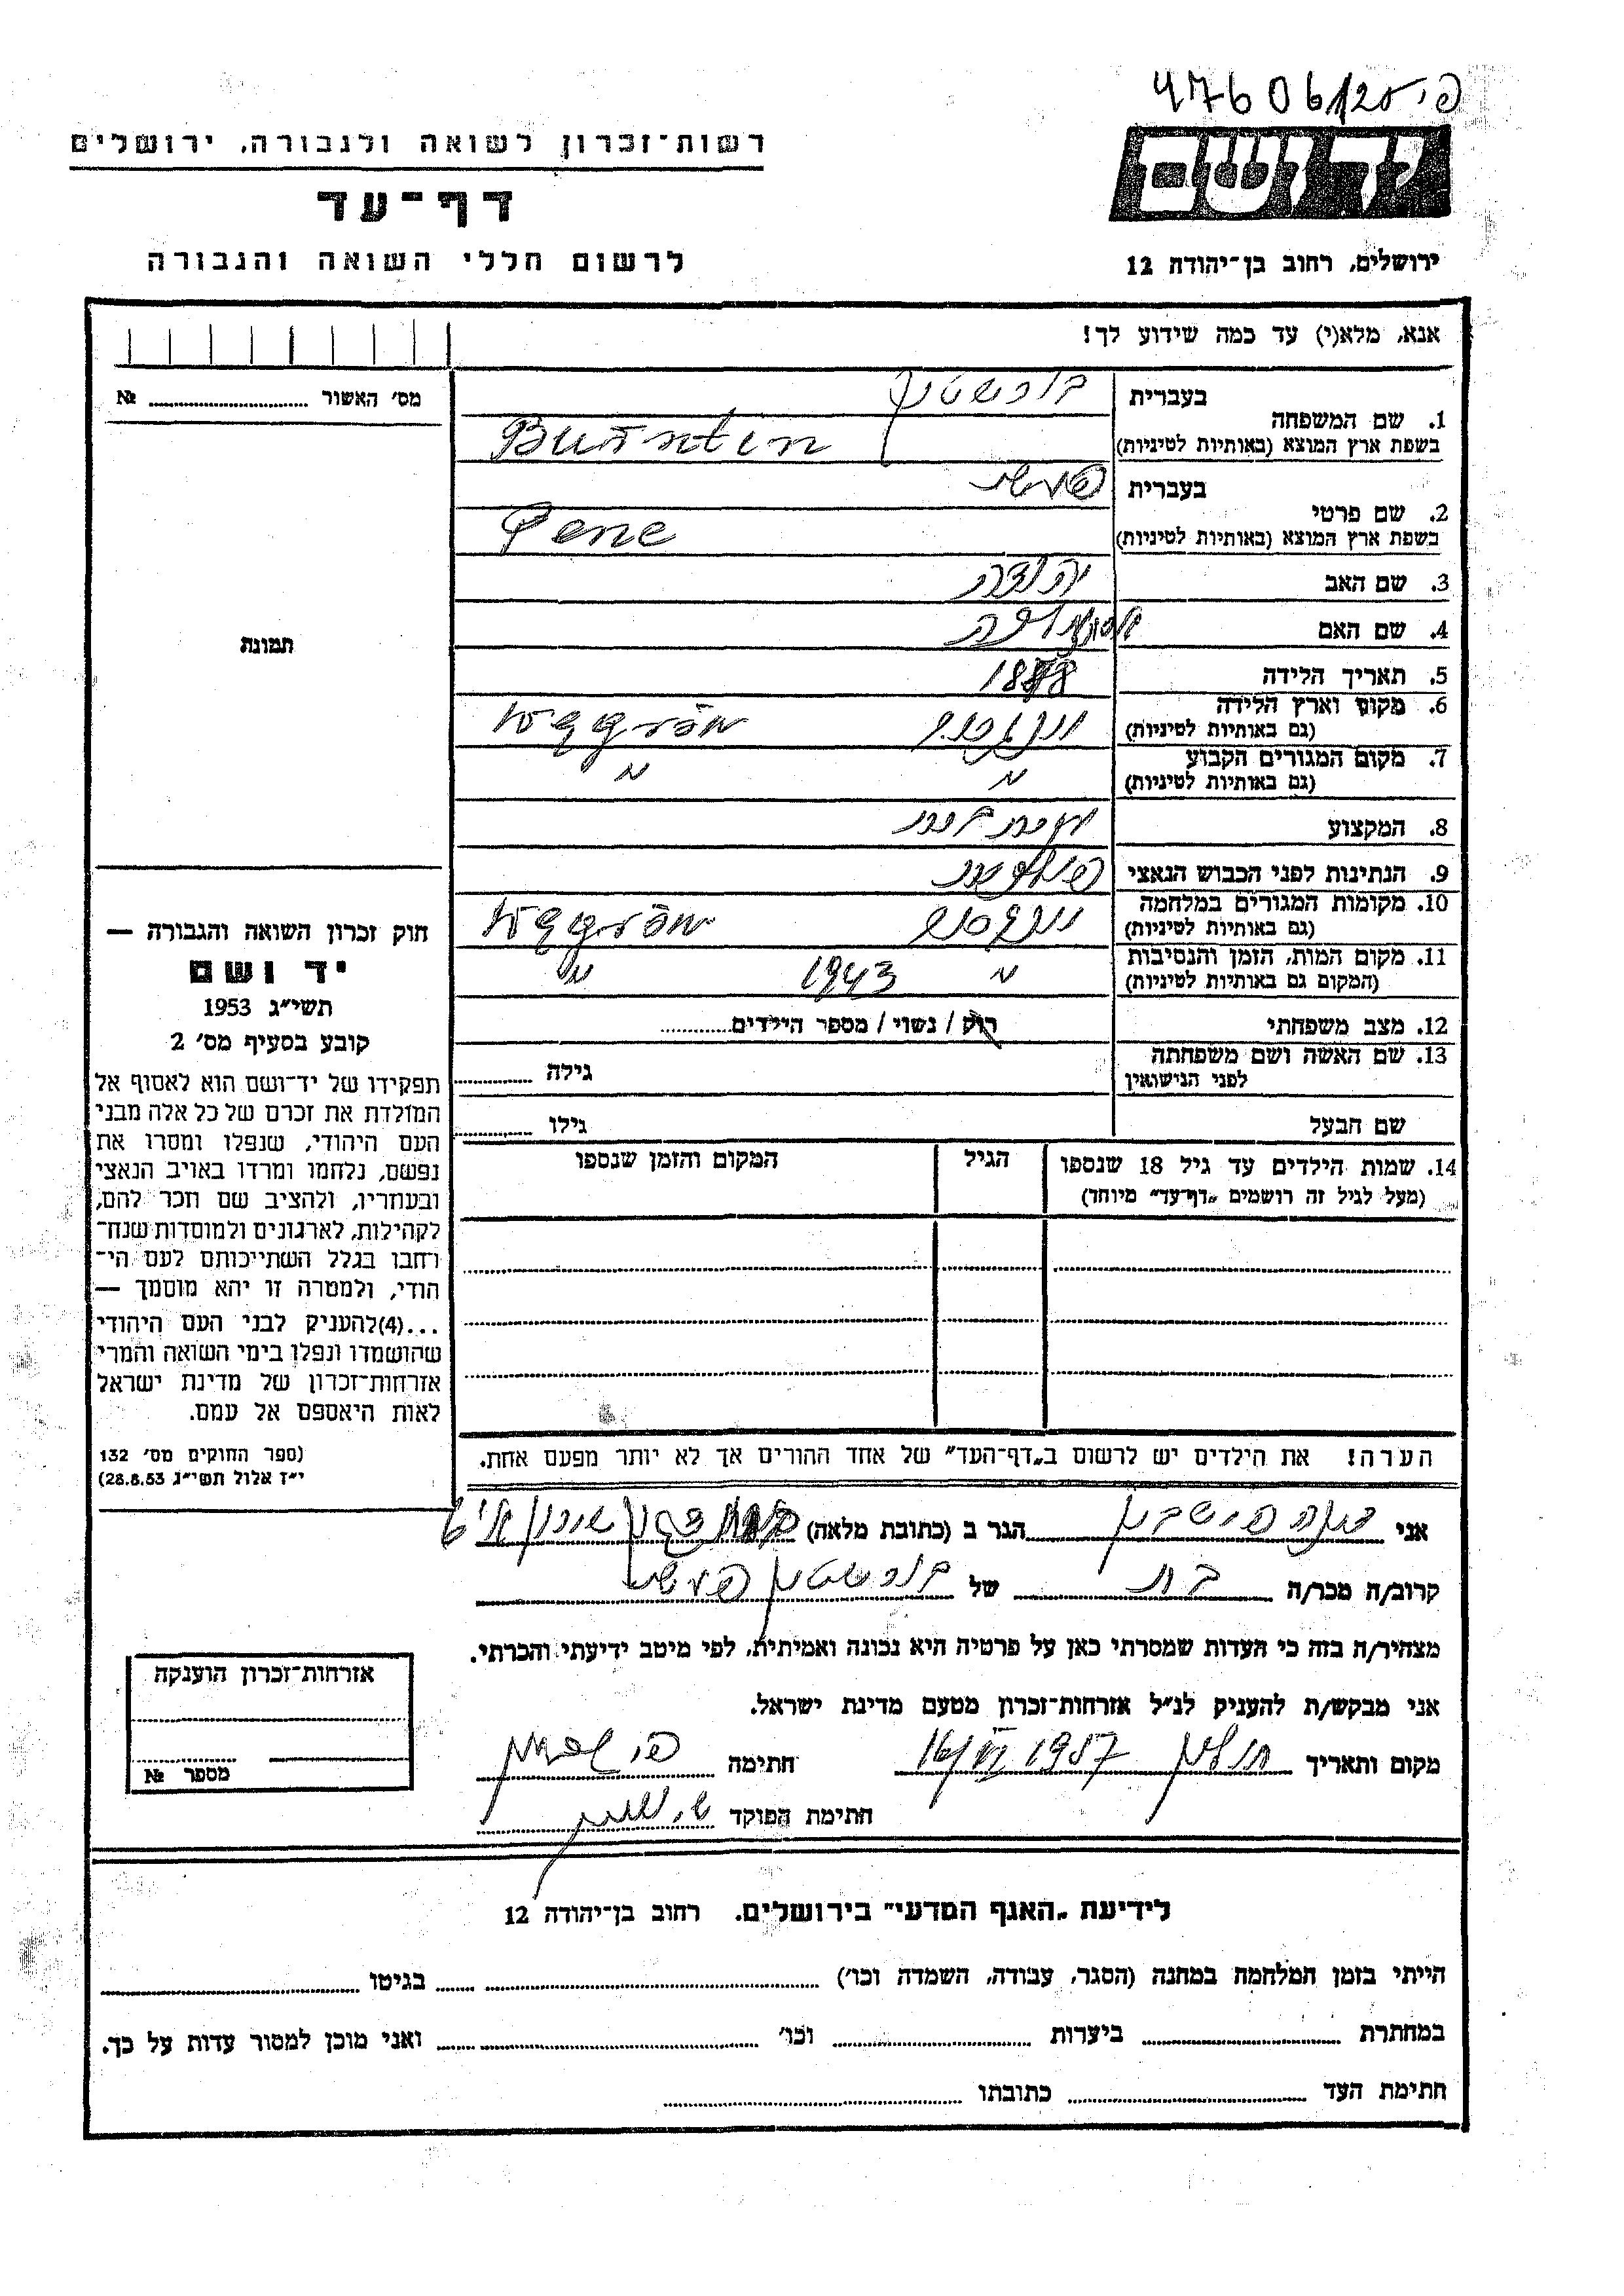 47606120 פי
רשות־זכרון לשואה ולגבורה, ירושלים
דף־עד
לרשום חללי השואה והגבורה
יד ושם
ירושלים, רחוב בן־יהודה 12
אנא, מלא(י) עד כמה שידוע לך!
מס׳ האשור № ........
1. שם המשפחה
בעברית
בשפת ארץ המוצא (באותיות לטיניות)
2. שם פרטי
בעברית
בשפת ארץ המוצא (באותיות לטיניות)
Pene
3. שם האב יהודה
4. שם האם
5. תאריך הלידה
6. מקום וארץ הלידה
(גם באותיות לטיניות)
Węgrów
7. מקום המגורים הקבוע
(גם באותיות לטיניות)
8. המקצוע
9. הנתינות לפני הכבוש הנאצי
10. מקומות המגורים במלחמה
(גם באותיות לטיניות)
Węgrów
11. מקום המות, הזמן והנסיבות
(המקום גם באותיות לטיניות)
1943
12. מצב משפחתי רווק / נשוי / מספר הילדים........
13. שם האשה ושם משפחתה
לפני הנישואין
גילה ........
שם הבעל גילו ........
14. שמות הילדים עד גיל 18 שנספו
(מעל לגיל זה רושמים „דף־עד״ מיוחד)
הגיל
המקום והזמן שנספו
הערה! את הילדים יש לרשום ב„דף־העד״ של אחד ההורים אך לא יותר מפעם אחת.
תמונת
חוק זכרון השואה והגבורה —
יד ושם
תשי״ג 1953
קובע בסעיף מס׳ 2
תפקידו של יד־ושם הוא לאסוף אל
המולדת את זכרם של כל אלה מבני
העם היהודי, שנפלו ומסרו את
נפשם, נלחמו ומרדו באויב הנאצי
ובעוזריו, ולהציב שם וזכר להם,
לקהילות, לארגונים ולמוסדות שנח־
רבו בגלל השתייכותם לעם הי־
הודי, ולמטרה זו יהא מוסמך —
...(4)להעניק לבני העם היהודי
שהושמדו ונפלו בימי השואה והמרי
אזרחות־זכרון של מדינת ישראל
לאות היאספם אל עמם.
(ספר החוקים מס׳ 132
י״ז אלול תשי״ג 28.8.53)
אני הגר ב (כתובת מלאה)
קרוב/ה מכר/ה בת של בוכשטין
מצהיר/ה בזה כי העדות שמסרתי כאן על פרטיה היא נכונה ואמיתית, לפי מיטב ידיעתי והכרתי.
אני מבקש/ת להעניק לנ״ל אזרחות־זכרון מטעם מדינת ישראל.
מקום ותאריך חולון 1957 חתימה
חתימת הפוקד
אזרחות־זכרון הוענקה
מספר №
לידיעת „האגף המדעי״ בירושלים. רחוב בן־יהודה 12
הייתי בזמן המלחמה במחנה (הסגר, עבודה, השמדה וכו׳) ........ בגיטו ........
במחתרת ........ ביערות ........ וכו׳ ........ ואני מוכן למסור עדות על כך.
חתימת העד ........ כתובתו ........